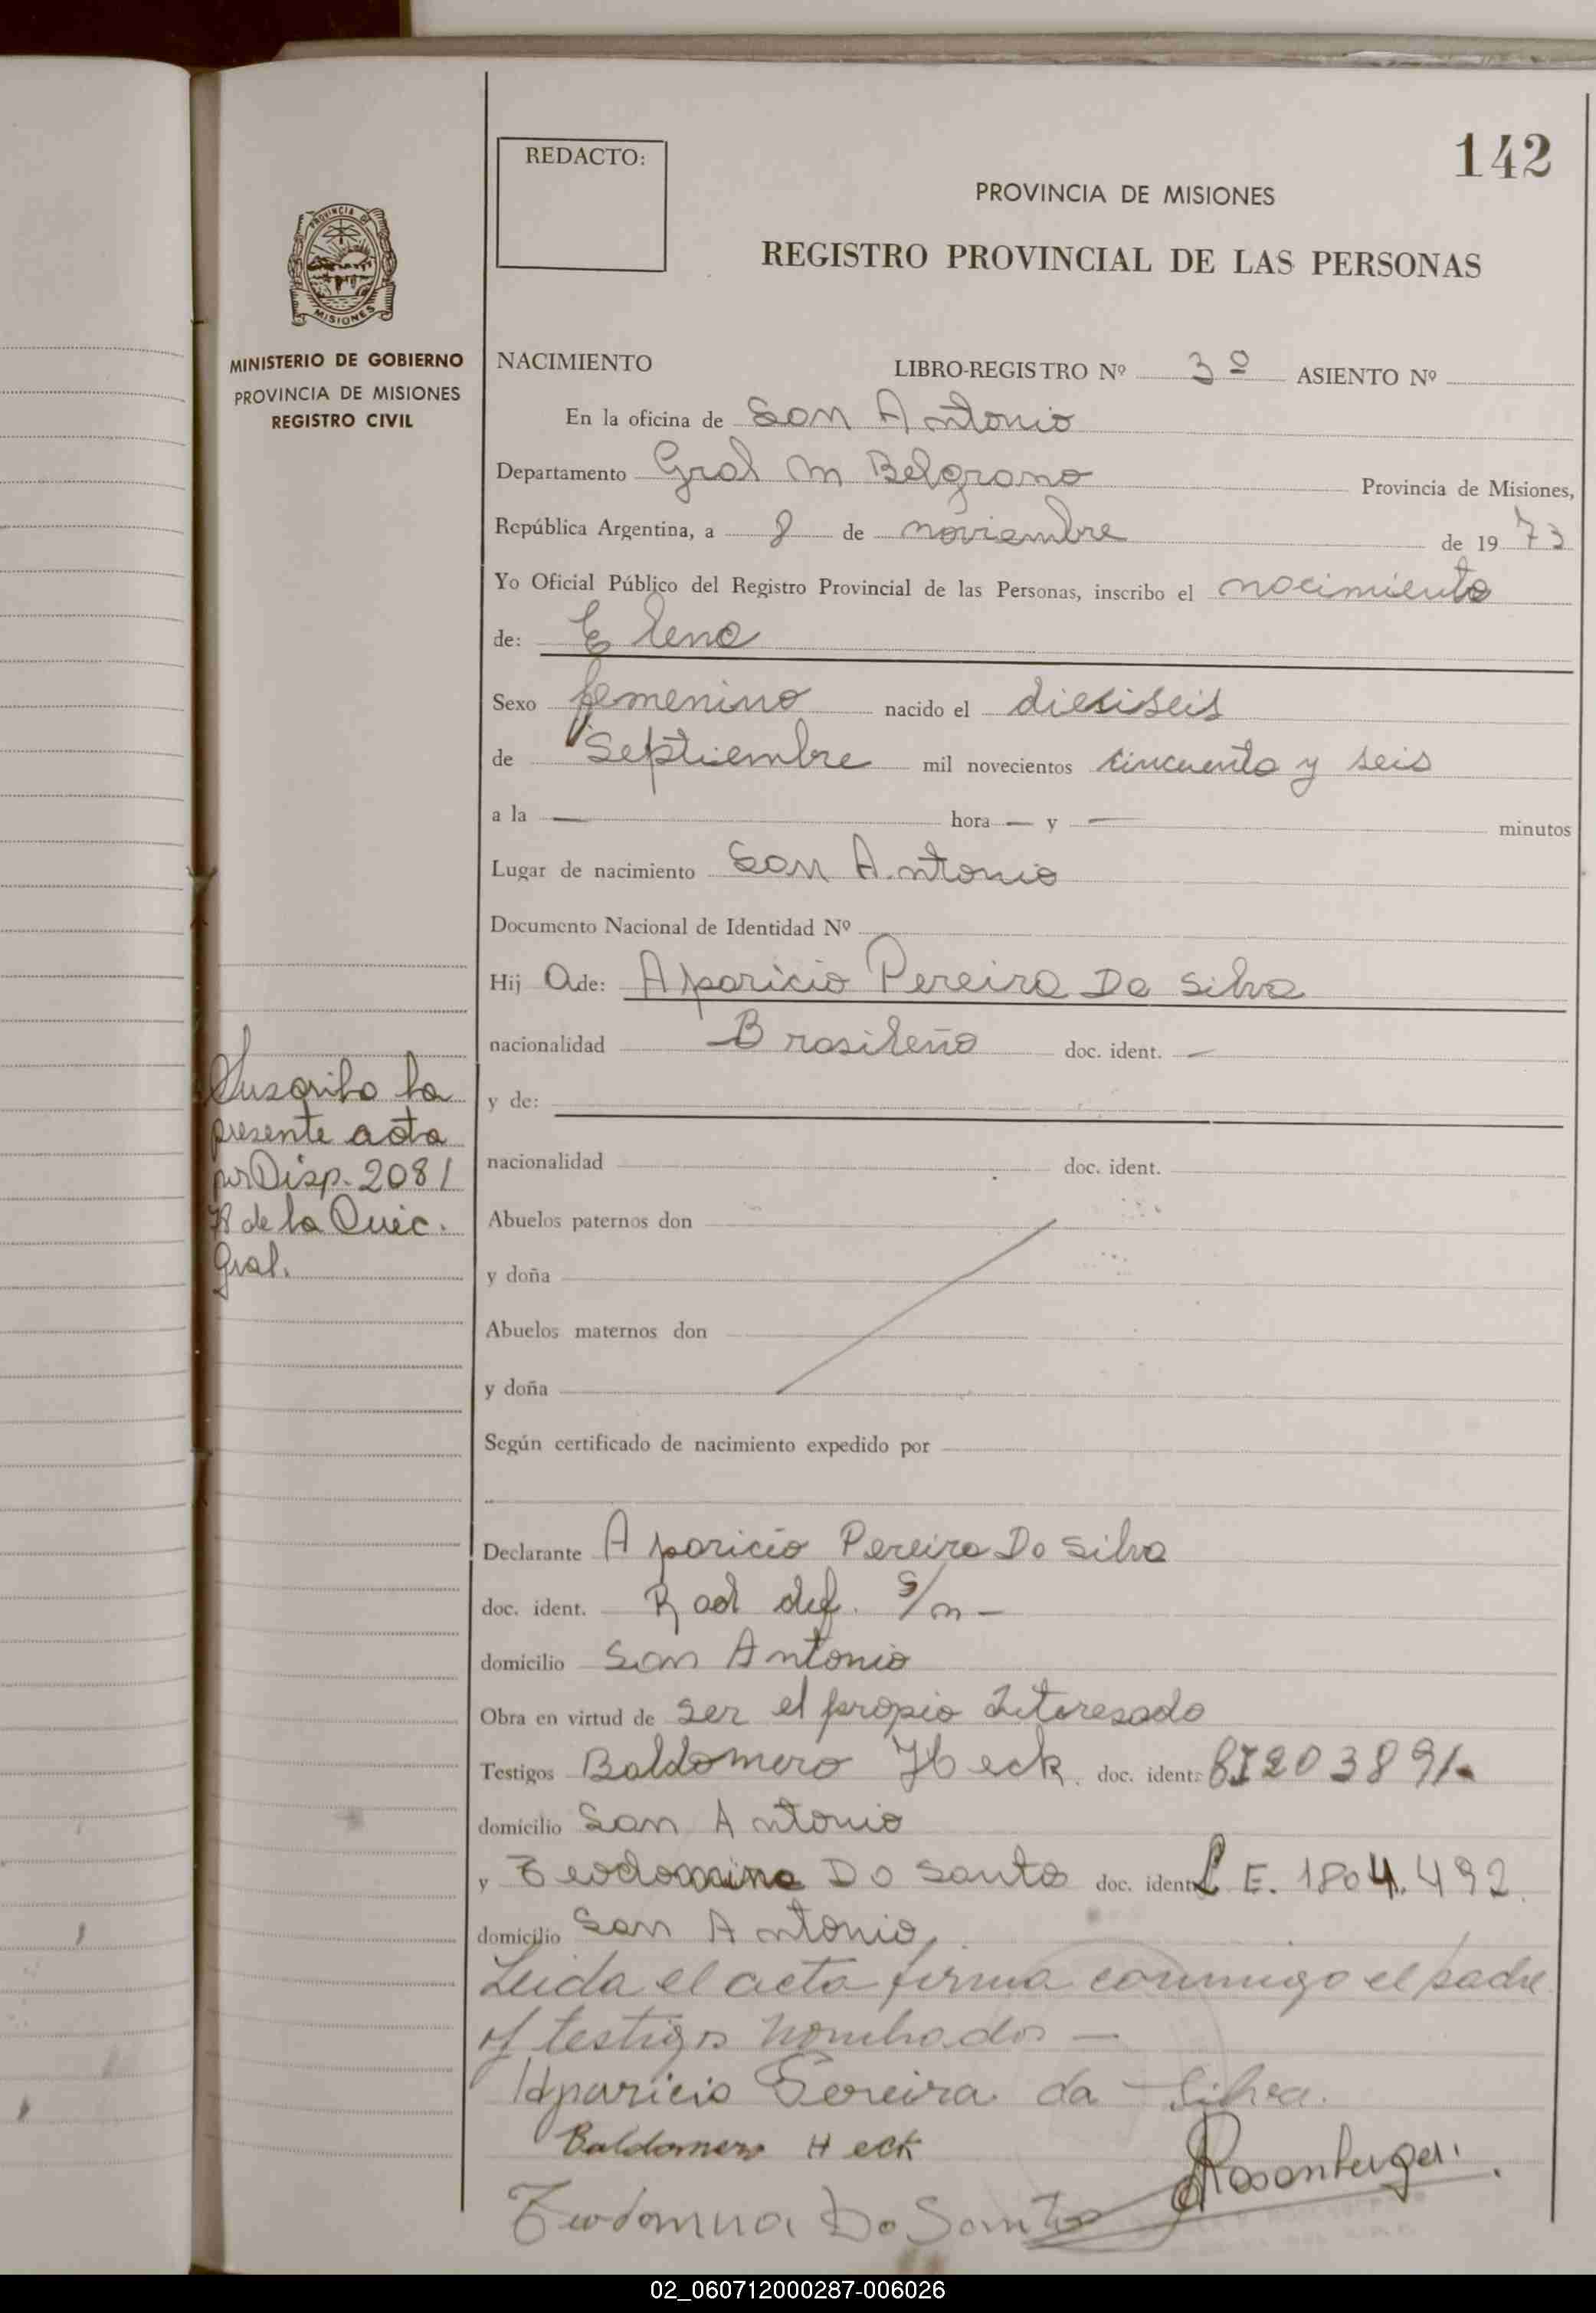 142
REDACTO:
PROVINCIA DE MISIONES
REGISTRO PROVINCIAL DE LAS PERSONAS
PROVINCIA DE
MISIONES
MINISTERIO DE GOBIERNO
PROVINCIA DE MISIONES
REGISTRO CIVIL
NACIMIENTO LIBRO-REGISTRO Nº 3º ASIENTO Nº
En la oficina de San Antonio
Departamento Gral M Belgrano Provincia de Misiones,
República Argentina, a 8 de noviembre de 1973
Yo Oficial Público del Registro Provincial de las Personas, inscribo el nacimiento
de: Elena
Sexo femenino nacido el dieciseis
de Septiembre mil novecientos cincuenta y seis
a la — hora — y — minutos
Lugar de nacimiento San Antonio
Documento Nacional de Identidad Nº
Hij a de: Aparicio Pereira Da Silva
nacionalidad Brasileño doc. ident. —
y de:
nacionalidad doc. ident.
Abuelos paternos don
y doña
Abuelos maternos don
y doña
Según certificado de nacimiento expedido por
Suscribo la
presente acta
por Disp. 2081
de la Direc.
Gral.
Declarante Aparicio Pereira Da Silva
doc. ident. Rad def. S/n —
domicilio San Antonio
Obra en virtud de ser el propio Interesado
Testigos Baldomero Heck doc. ident.
domicilio San Antonio
y Teodomina Do Santos doc. ident. L E. 1804.492
domicilio San Antonio
Leida el acta firma conmigo el padre
y testigos nombrados —
Aparicio Pereira da Silva.
Baldomero Heck
Rosenberger
Teodomina Do Santos
02_060712000287-006026